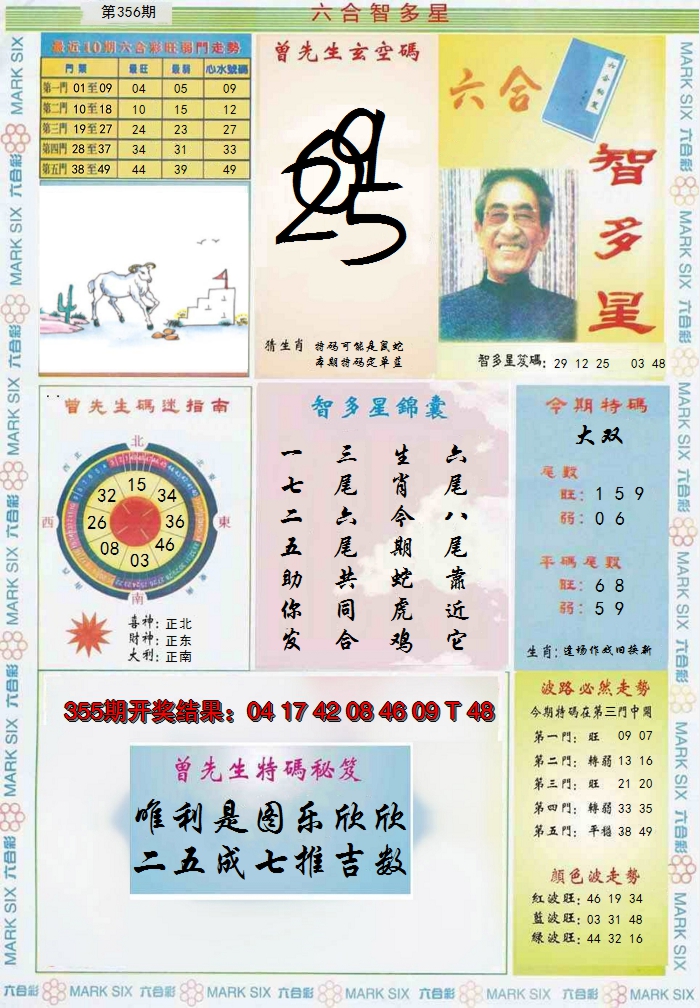 第356期
六合智多星
最近10期六合彩旺弱門走勢
門類 最旺 最弱 心水號碼
第一門 01至09 04 05 09
第二門 10至18 10 15 12
第三門 19至27 24 23 27
第四門 28至37 34 31 33
第五門 38至49 44 39 49
曾先生玄空碼
猜生肖 特码可能是鼠蛇
本期特码定单蓝
六合
智多星
智多星笈碼: 29 12 25 03 48
曾先生碼迷指南
北
西北
東北
西
東
西南
東南
南
15
34
36
46
03
08
26
32
喜神: 正北
財神: 正东
大利: 正南
智多星錦囊
一七二五助你发
三尾六尾共同合
生肖今期蛇虎鸡
六尾八尾靠近它
今期特碼
大双
尾數
旺: 1 5 9
弱: 0 6
平碼尾數
旺: 6 8
弱: 5 9
生肖: 逢场作戏旧换新
355期开奖结果: 04 17 42 08 46 09 T 48
曾先生特碼秘笈
唯利是图乐欣欣
二五成七推吉数
波路必然走勢
今期特碼在第三門中開
第一門: 旺 09 07
第二門: 轉弱 13 16
第三門: 旺 21 20
第四門: 轉弱 33 35
第五門: 平穩 38 49
顏色波走勢
紅波旺: 46 19 34
藍波旺: 03 31 48
綠波旺: 44 32 16
MARK SIX 六合彩